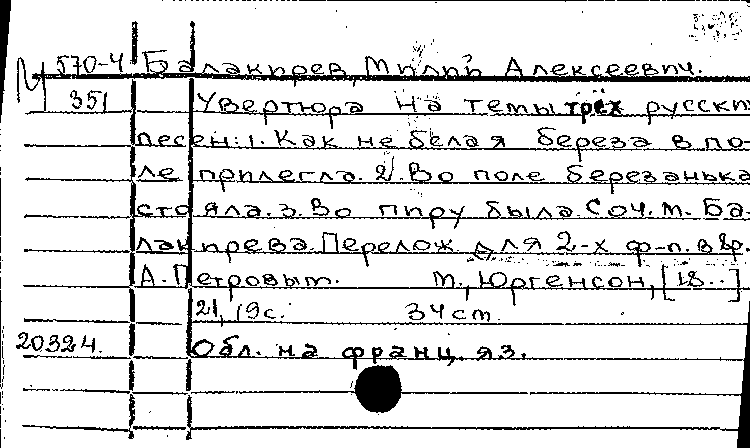 570-4 Балакирев, Милий Алексеевич.
М 351 Увертюра на темы трёх русских
песен: 1. Как не белая береза в по-
ле прилегла. 2. Во поле березанька
стояла. 3. Во пиру была. Соч. М. Ба-
лакирева. Перелож для 2-х ф-п. в 8р.
А. Петровым. М., Юргенсон, [18..]
21, 19с. 34 cm.
20324. Обл. на франц. яз.